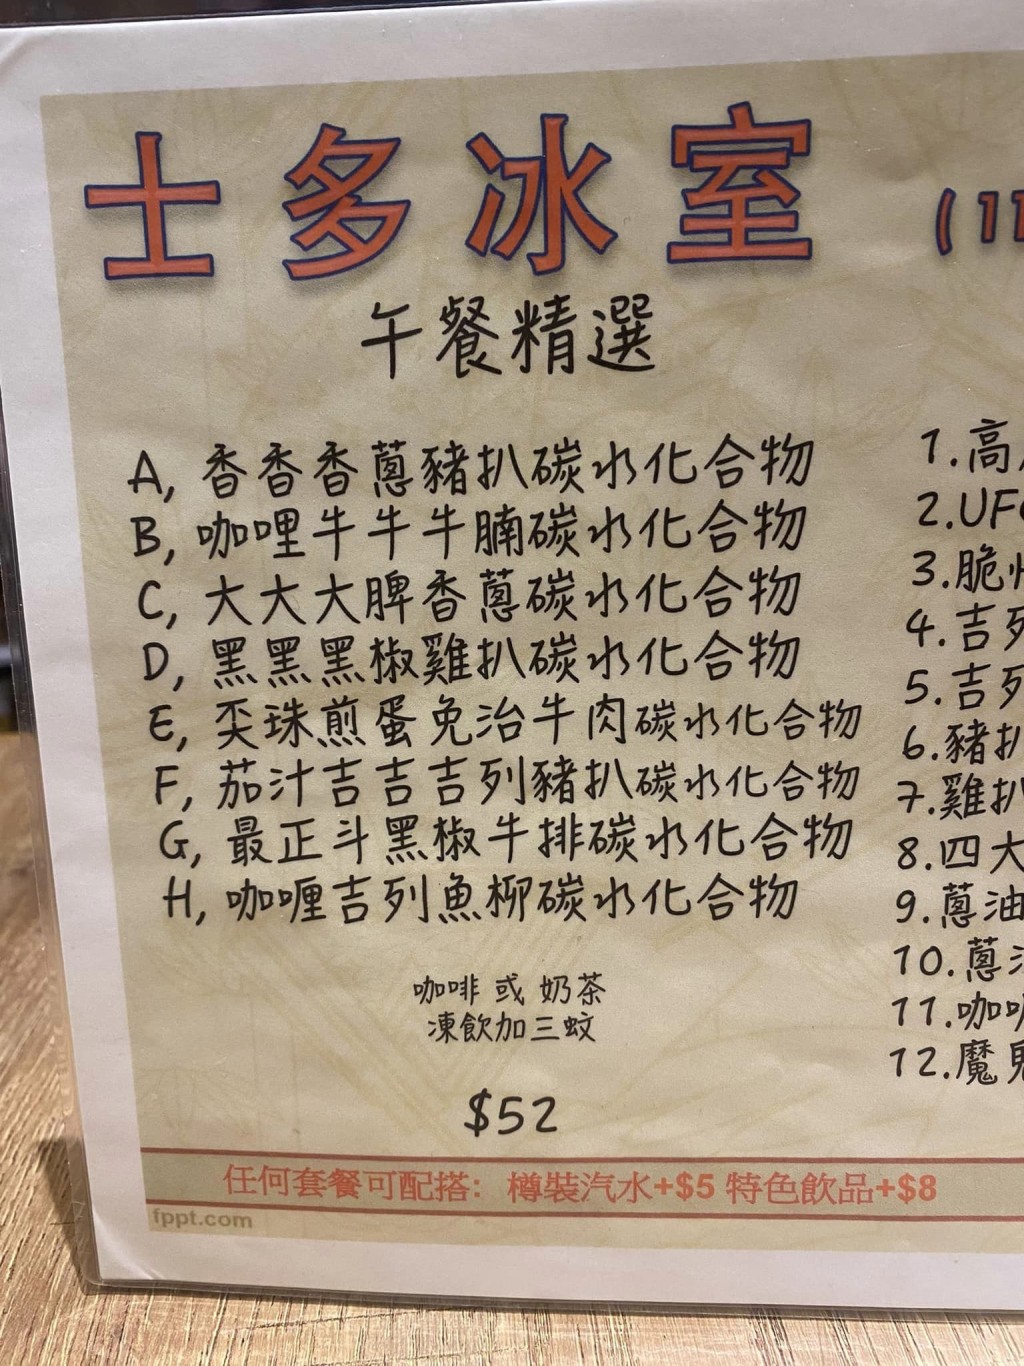 士多冰室 (11
午餐精選
A, 香香香蔥豬扒碳水化合物
B, 咖哩牛牛牛腩碳水化合物
C, 大大大脾香蔥碳水化合物
D, 黑黑黑椒雞扒碳水化合物
E, 奀珠煎蛋免治牛肉碳水化合物
F, 茄汁吉吉吉列豬扒碳水化合物
G, 最正斗黑椒牛排碳水化合物
H, 咖喱吉列魚柳碳水化合物
咖啡 或 奶茶
凍飲加三蚊
$52
1.高
2.UF
3.脆
4.吉列
5.吉列
6.豬扒
7.雞扒
8.四大
9.蔥油
10.蔥
11.咖
12.魔
任何套餐可配搭: 樽裝汽水+$5 特色飲品+$8
fppt.com